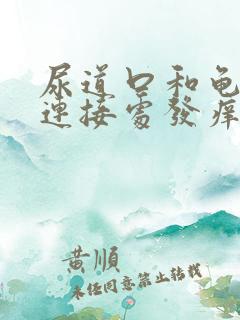 尿道口和龟
连接處發痒
黄順
未任同意禁止转载